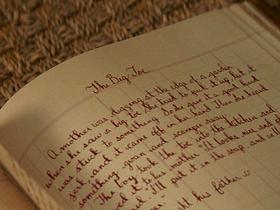 The Big Toe
A mother was digging at the edge of a garden
when she saw a big toe. She tried to pick it up, but it
was stuck to something. So she gave it a good hard
jerk and it came off in her hand. Then she heard
something groan and scamper away.
The took the toe into the kitchen and
to his mother. "It looks nice and
I'll put it in the soup, and
his father